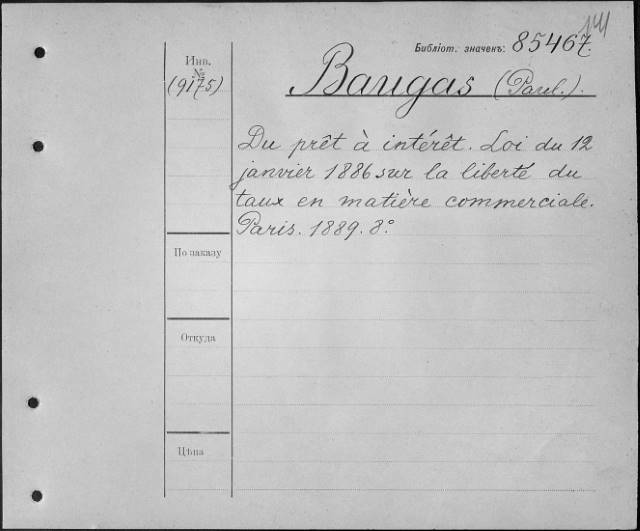 Библіот. значекъ: 85467.
Инв.
№
(9175)
Baugas (Paul.).
Du prêt à intérêt. Loi du 12
janvier 1886 sur la liberté du
taux en matière commerciale.
Paris. 1889. 8°.
По заказу
Откуда
Цѣна